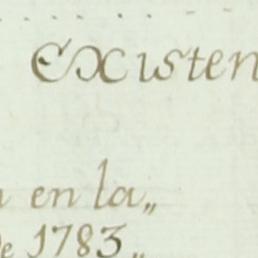 Existen
en la„
de 1783„